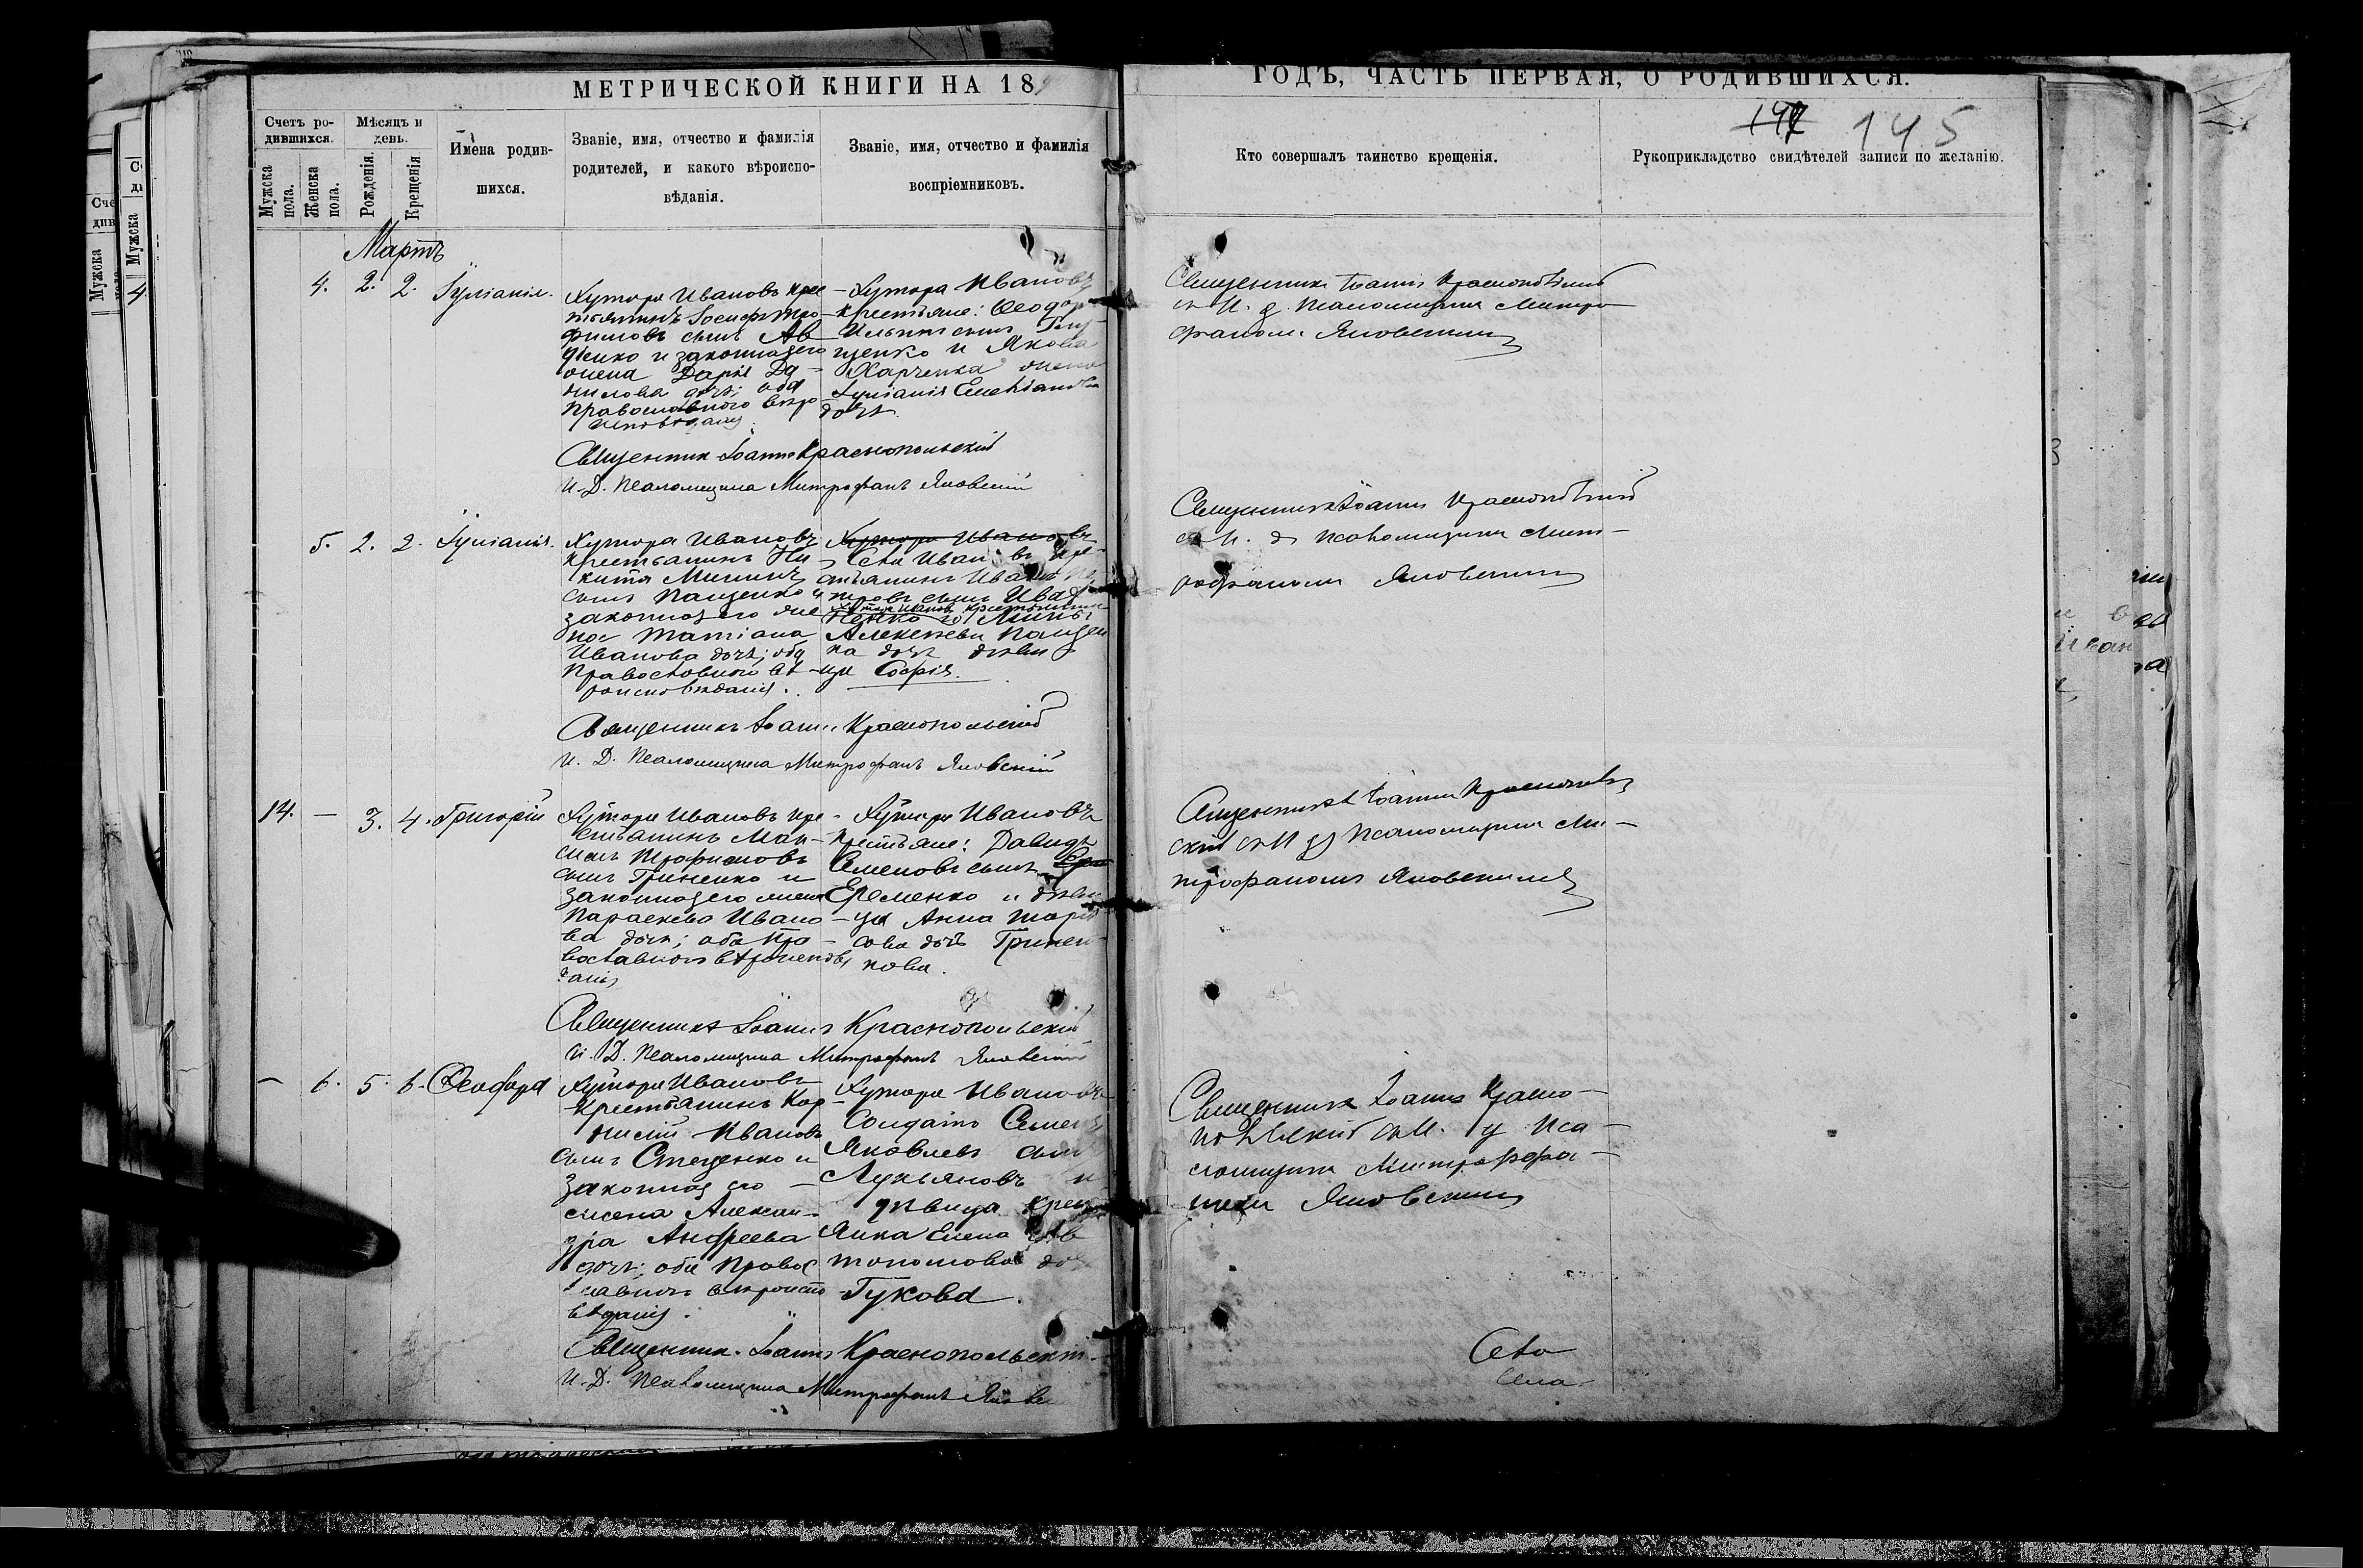 МЕТРИЧЕСКОЙ КНИГИ НА 18
ГОДЪ, ЧАСТЬ ПЕРВАЯ, О РОДИВШИХСЯ.
145
Счетъ ро-
дившихся.
Мужска
пола.
Женска
пола.
Мѣсяцъ и
день.
Рожденія.
Крещенія
Имена родив-
шихся.
Званіе, имя, отчество и фамилія
родителей, и какого вѣроиспо-
вѣданія.
Званіе, имя, отчество и фамилія
воспріемниковъ.
Кто совершалъ таинство крещенія.
Рукоприкладство свидѣтелей записи по желанію.
Мартъ
4. 2. 2. Іуліанія.
Хутора Ивановъ кре
стьянинъ Іосифъ Тро
фимовъ сынъ
и законная его
жена Дарія Да
нилова дочь; оба
православного вѣро
исповѣданія.
Хутора Ивановъ
крестьяне: Ѳеодоръ
Ильинъ сынъ
щенко и Якова
Харченка жена
Іуліанія
дочь.
Священникъ Іоаннъ Краснопольскій
И. Д. Псаломщика Митрофанъ Яновскій
Священникъ Іоаннъ Краснопольскій
съ И. д. псаломщика Митро
фаномъ Яновскимъ
5. 2. 2. Іуліанія.
Хутора Ивановъ
крестьянинъ Ни
кита Мининъ
сынъ Пащенко и
законная его же
на Татіана
Иванова дочь; оба
православного вѣ
роисповѣданія.
Хутора Ивановъ
кре
стьянинъ Иванъ Пе
тровъ сынъ
Хутора Ивановъ крестьянина
Мины
Алексѣева Пащен
ка дочь дѣви
ца Софія.
Священникъ Іоаннъ Краснопольскій
И. Д. Псаломщика Митрофанъ Яновскій
Священникъ Іоаннъ Краснопольскій
съ И. д. псаломщика Мит-
рофаномъ Яновскимъ
14. — 3. 4. Григорій
Хутора Ивановъ кре
стьянинъ Мак-
симъ Трофимовъ
сынъ Гриненко и
законная его жена
Параскева Ивано-
ва дочь; оба пра-
вославного вѣроисповѣ
данія
Хутора Ивановъ
крестьяне: Давидъ
Семеновъ сынъ
Еременко и дѣви
ца Анна Тара
сова дочь Гринен-
кова.
Священникъ Іоаннъ Краснопольскій
И. Д. Псаломщика Митрофанъ Яновскій
Священникъ Іоаннъ Краснополь
скій съ И д псаломщика Ми-
трофаномъ Яновскимъ
— 6. 5. 6. Ѳеодора
Хутора Ивановъ
крестьянинъ Кор
нилій Ивановъ
сынъ Стеценко и
законная его
жена Алексан-
дра Андреева
дочь; оба правос
лавного вѣроиспо
вѣданія.
Хутора Ивановъ
Солдатъ Семенъ
Яковлевъ сынъ
Лукьяновъ и
дѣвица крест
янка Елена Ав
тономова до
Гукова.
Священникъ Іоаннъ Краснопольскій
И. Д. Псаломщика Митрофанъ Яновс
Священникъ Іоаннъ Красно-
польскій съ И. д Пса-
ломщика Митрофа-
номъ Яновскимъ